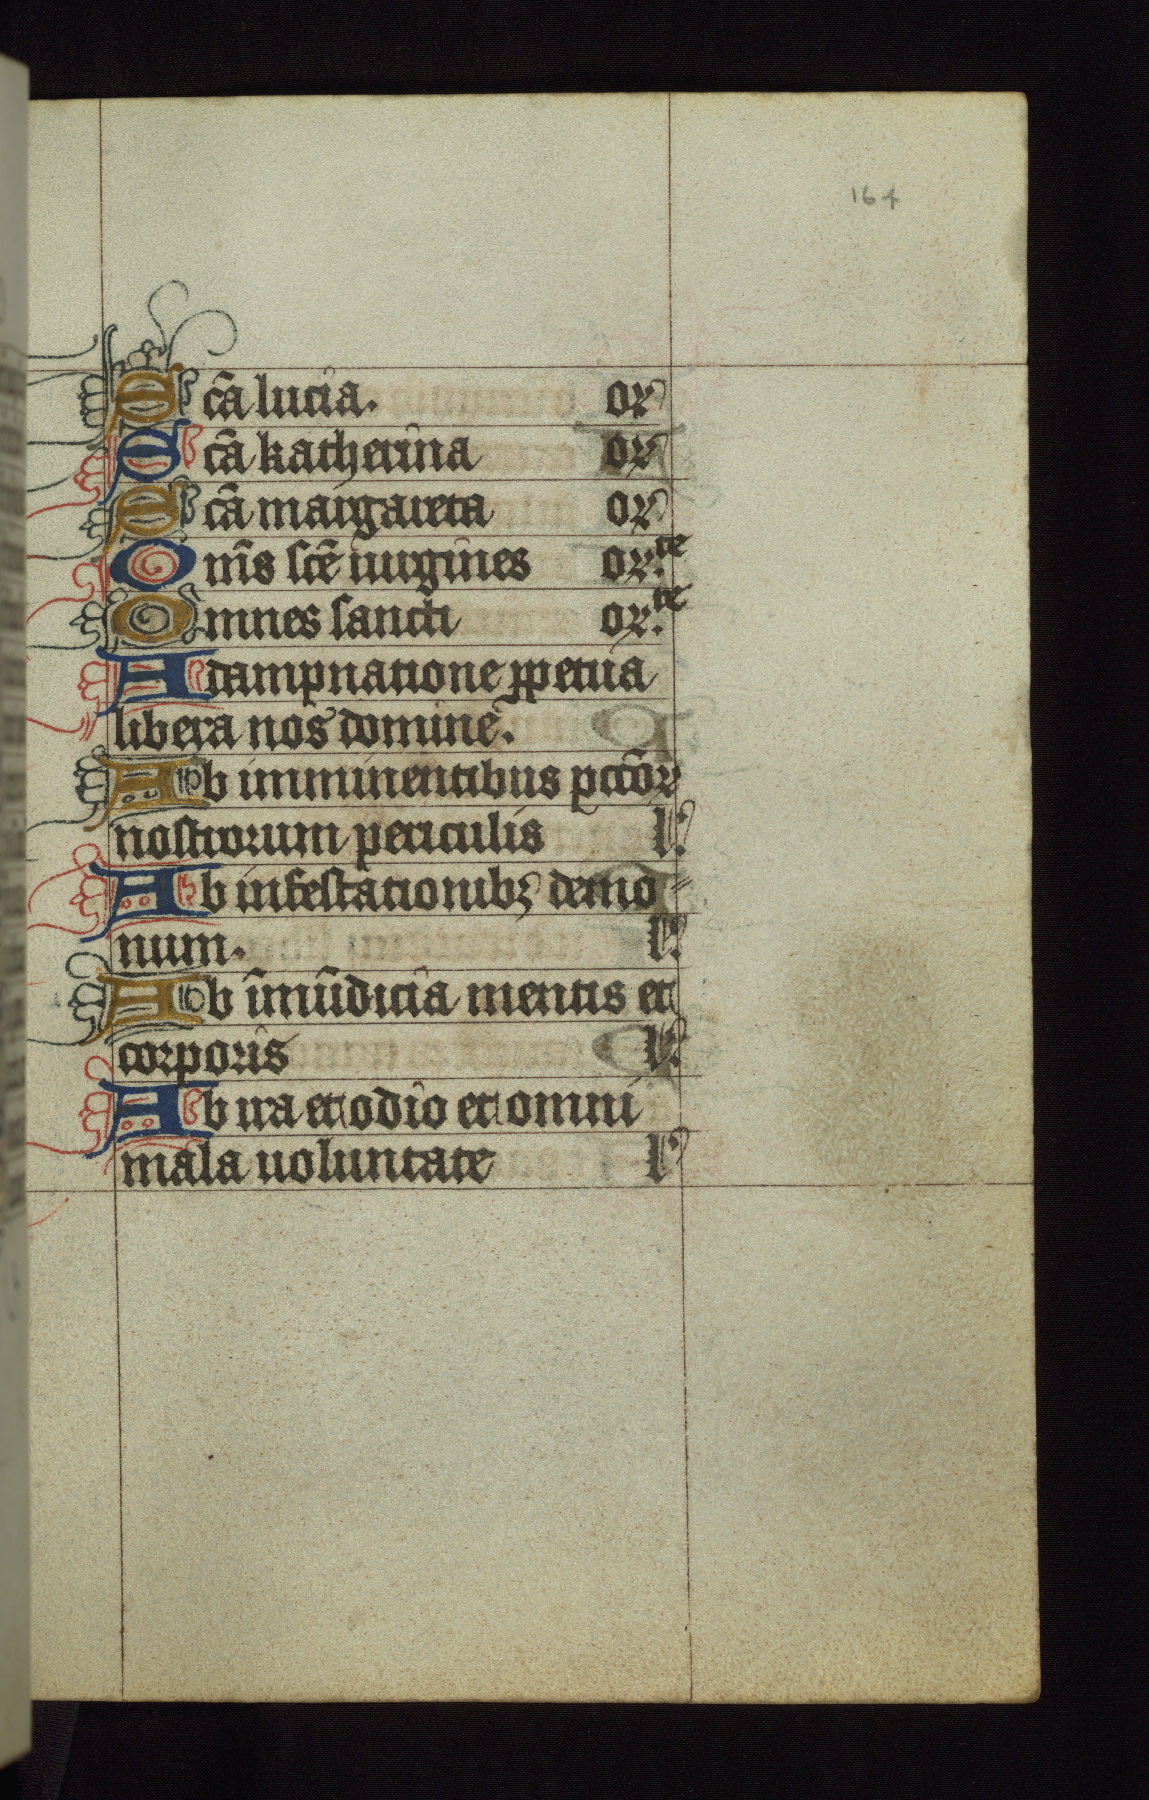 164
Scā lucia. or
Scā katherina or
Scā margareta or
Om̄s sc̄e uirgines or.te
Omnes sancti or.te
A dampnatione ꝑpetua
libera nos domine.
Ab imminentibus pctōꝝ
nostrorum periculis l'.
Ab infestationibꝫ demo⸗
num. l'.
Ab īmūdicia mentis et
corporis l'.
Ab ira et odio et omni
mala uoluntate l'